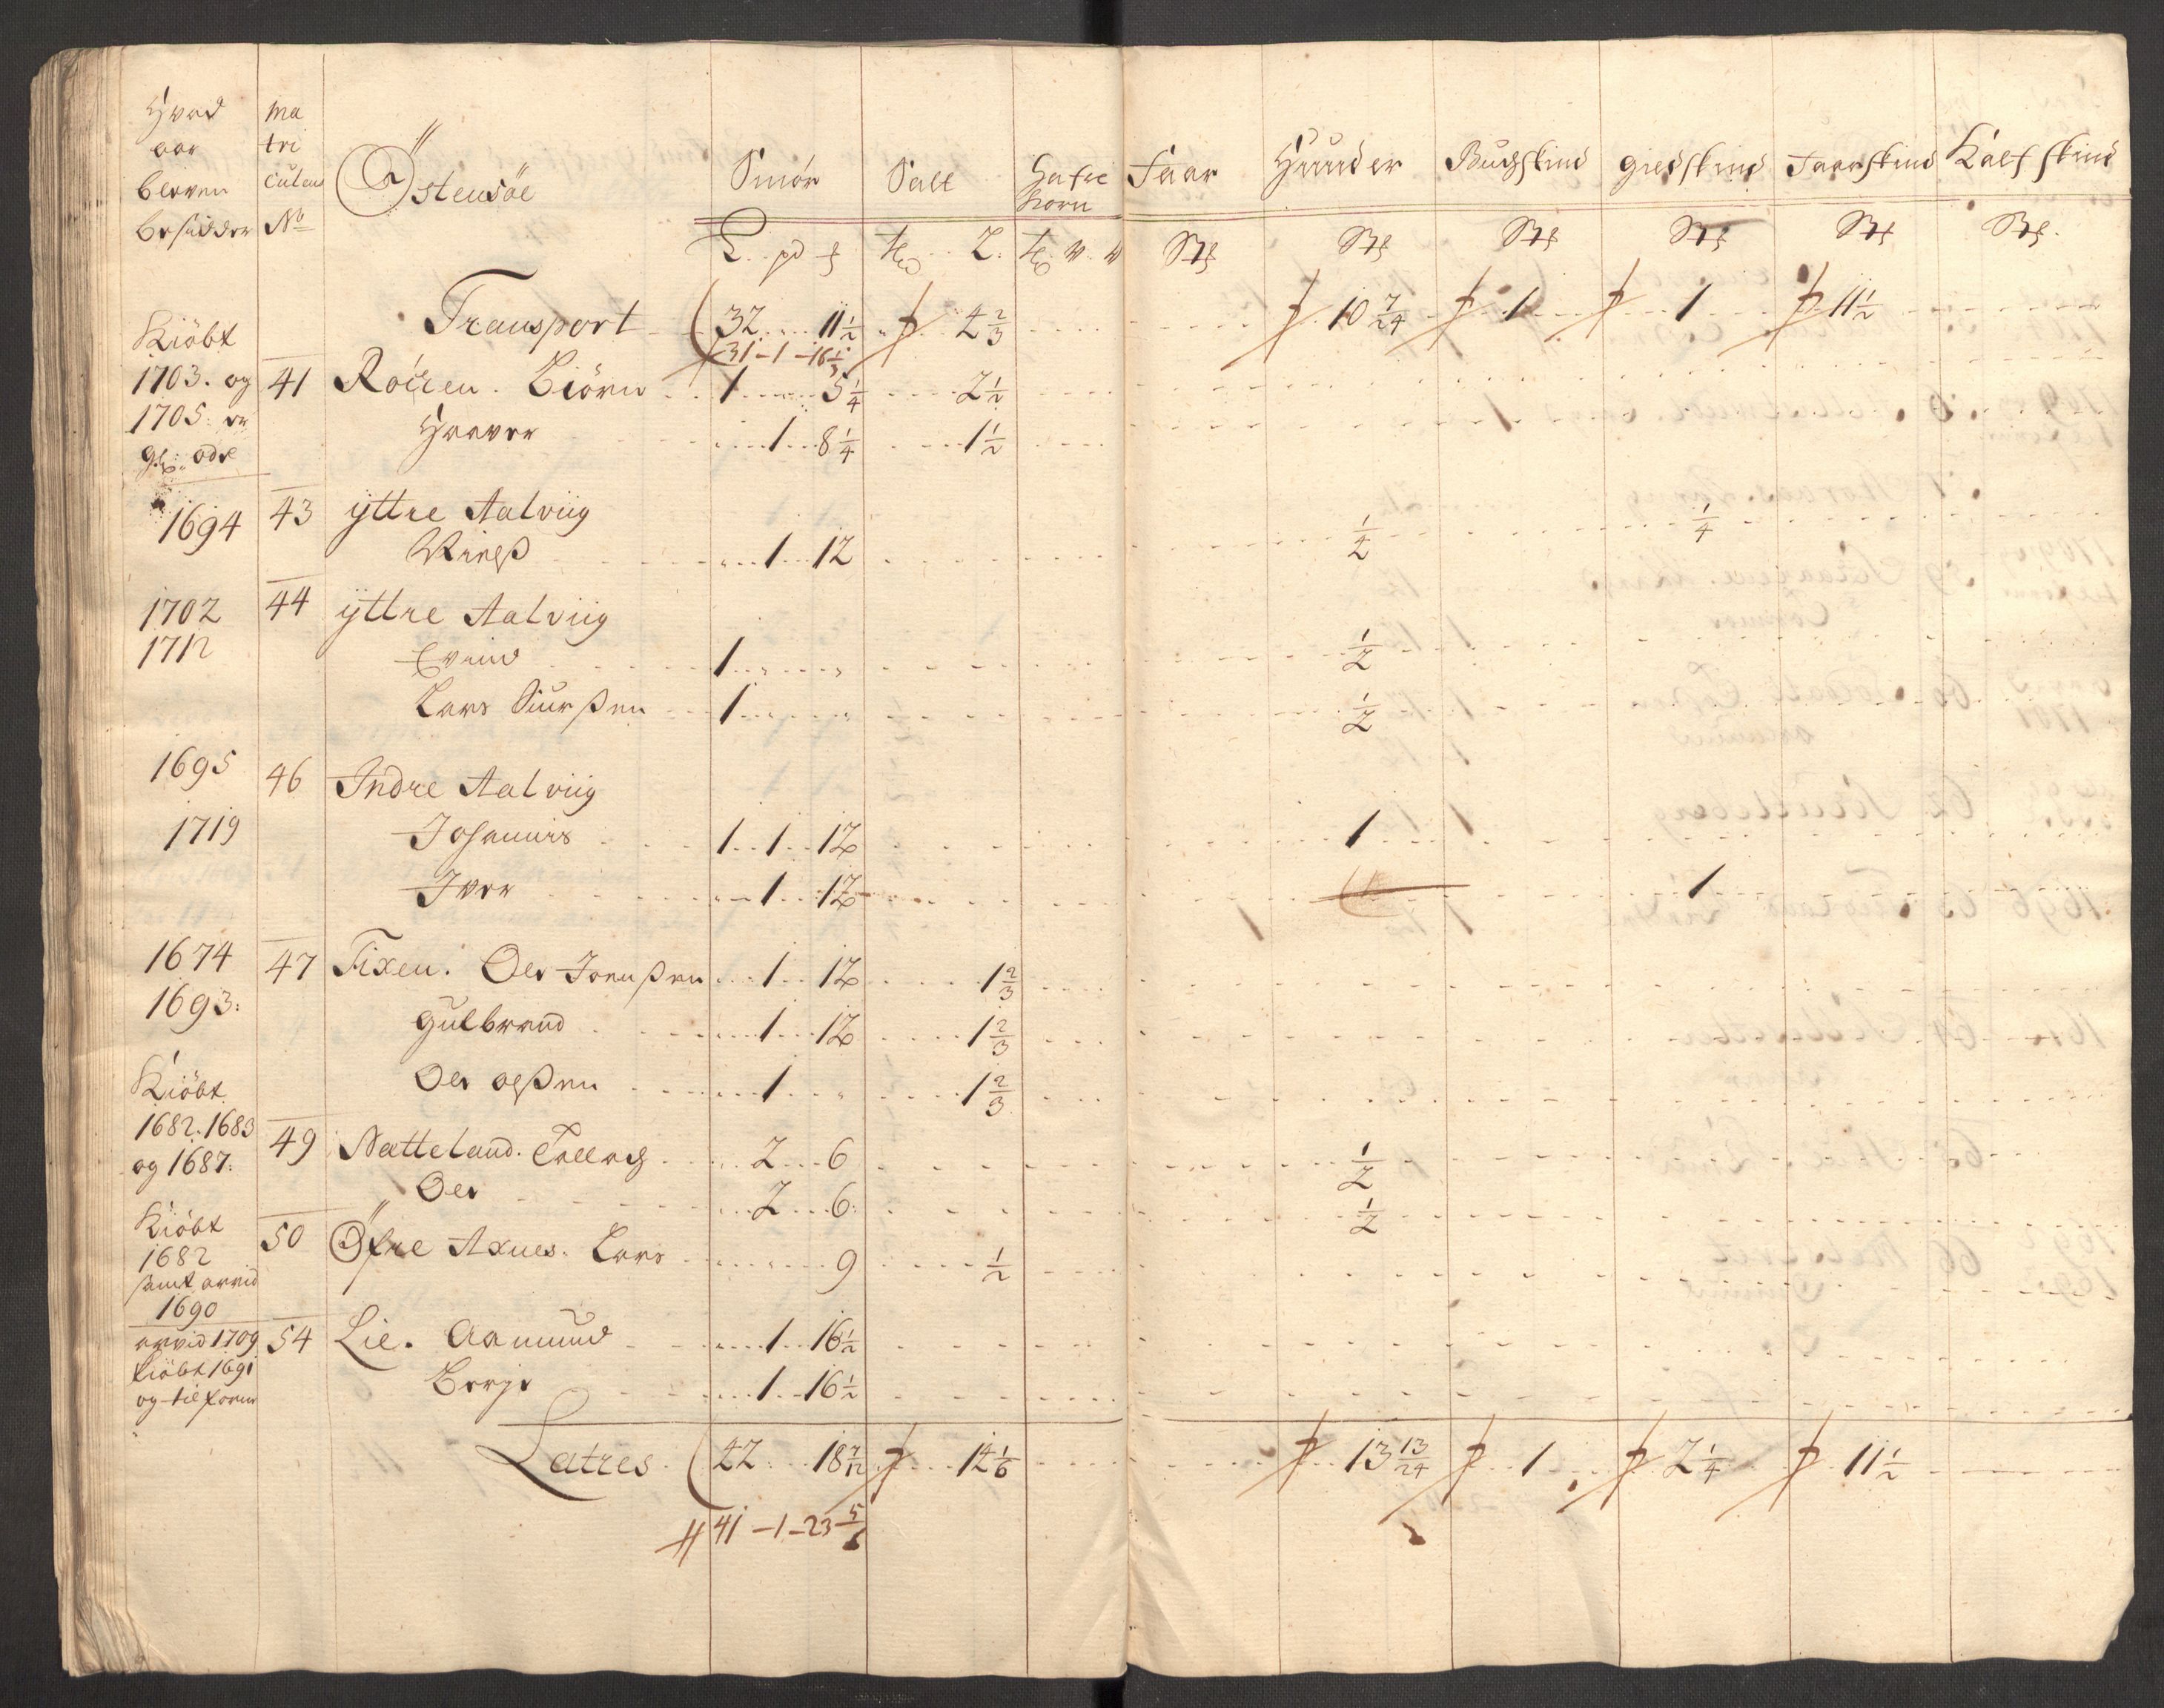 Hvad aar bleven besidder | Ma tri culens No | Østensöe | Smör | Salt | Hafre korn | Faar | Huuder | Buchskind | giedskind | Faarskind | Kalfskind
L. pd | St | St | St | St | St | St
Transport | 32 .. 11 1/2 | 4 2/3 | 10 7/24 | 1 | 1 | 11 1/2
31 - 1 - 16 1/3
Kiöbt 1703. og 1705. | 41 | Röiren. Biörn | 1 .. 5 1/4 | 2 1/2
Haaver | 1 . 8 1/4 | 1 1/2
1694 | 43 | ÿttre Aalviig
1 . 12 | 1/2 | 1/4
1702 | 44 | ÿttre Aalviig
1712 | Evind | 1 | 1/2
Lars Siurßen | 1 | 1/2
1695 | 46 | Indre Aalviig
1719 | Johannis | 1 . 1 . 12 | 1
Iver | 1 . 12 | 1
1674 | 47 | Fixen. Ole Joenßen | 1 . 12 | 1 2/3
1693: | Gulbrand | 1 . 12 | 1 2/3
Ole olßen | 1 | 1 2/3
Kiöbt 1682. 1683 og 1687: | 49 | Natteland. Tollach | 2 . 6 | 1/2
Ole | 2 . 6 | 1/2
Kiöbt 1682 samt arvid 1690 | 50 | Øfre Axnes. Lars | 9 | 1/2
arvid 1709 kiöbt 1691 og tilforn | 54 | Lie. Aamund | 1 . 16 1/2
Børge | 1 . 16 1/2
Latres | 42 .. 18 7/12 | 14 1/6 | 13 13/24 | 1 | 2 1/4 | 11 1/2
41 - 1 - 23 5/6